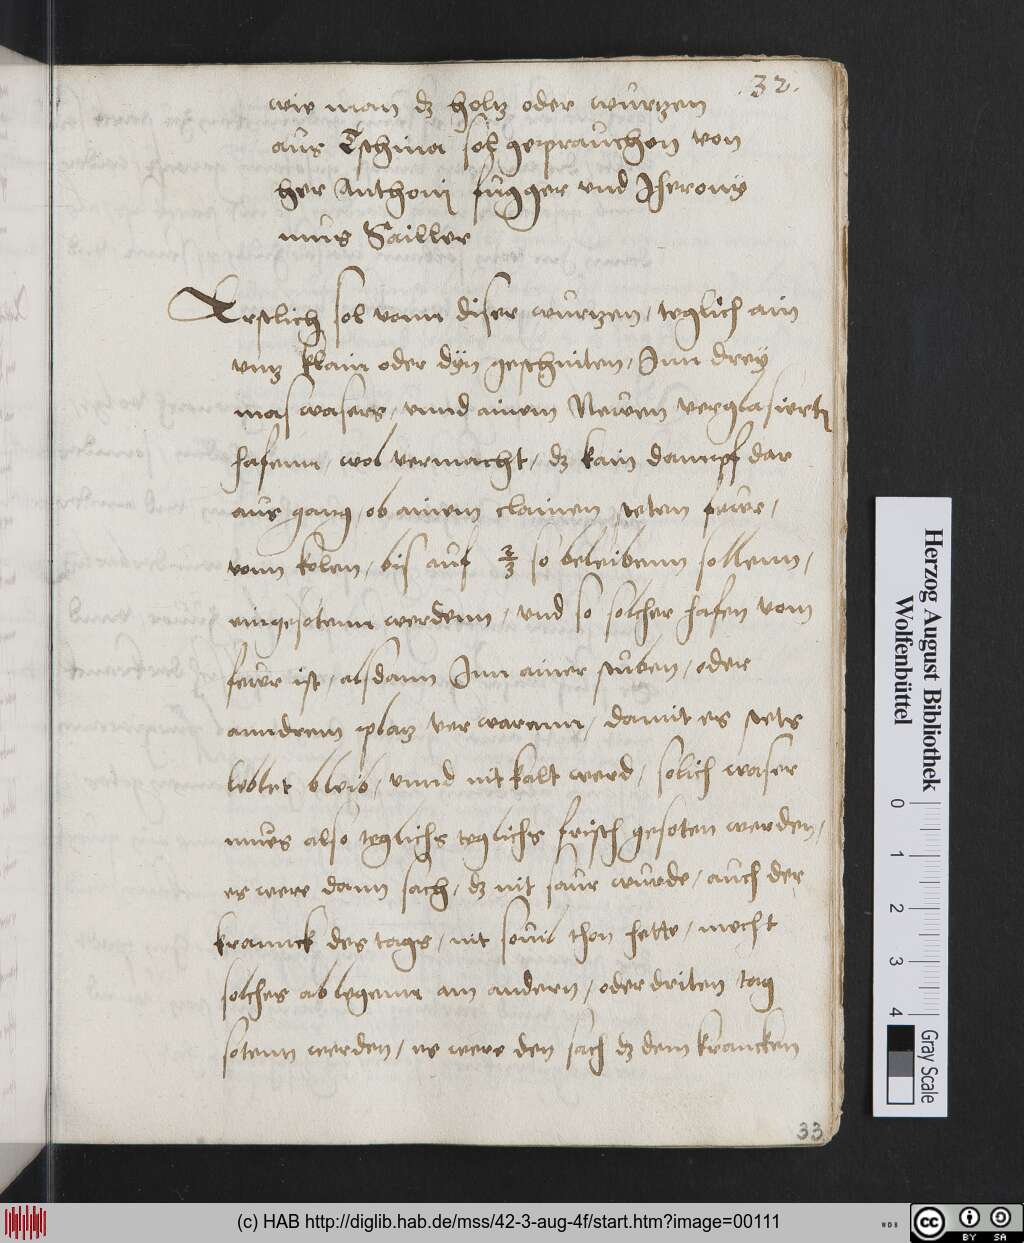 .32.
wie man dz holtz oder wurtzen
aus Tschina sol geprauchen von
her Anthonj fugger vnd Jherony
mus Sailler
Erstlich sol vonn diser wurtzen, teglich ain
vntz klain oder dyn geschniten, Inn drey
mas wasers, vnnd ainem Newen verglasiertn
hafenn, wol vermacht, dz kain dampf dar
aus gang, ob ainem clainen steten feuer,
vonn kolen, bis auf 2/3 so beleibenn sollenn,
eingesotenn werdenn, vnd so solcher hafen vom
feuer ist, alsdann Inn ainer stuben, oder
anndrem platz verwarenn, damit es stets
leblet bleib, vnnd nit kalt werd, solich waser
mues also teglichs teglichs frisch gesoten werden,
es were dann sach, dz nit saur wurde, auch der
krannck des tags, nit souil thon hette, mecht
solches ablegenn am andern, oder driten tag
sotenn werden, es were den sach dz dem krancken
33
Herzog August Bibliothek
Wolfenbüttel
0 1 2 3 4
Gray Scale
(c) HAB http://diglib.hab.de/mss/42-3-aug-4f/start.htm?image=00111
WDB
cc BY SA